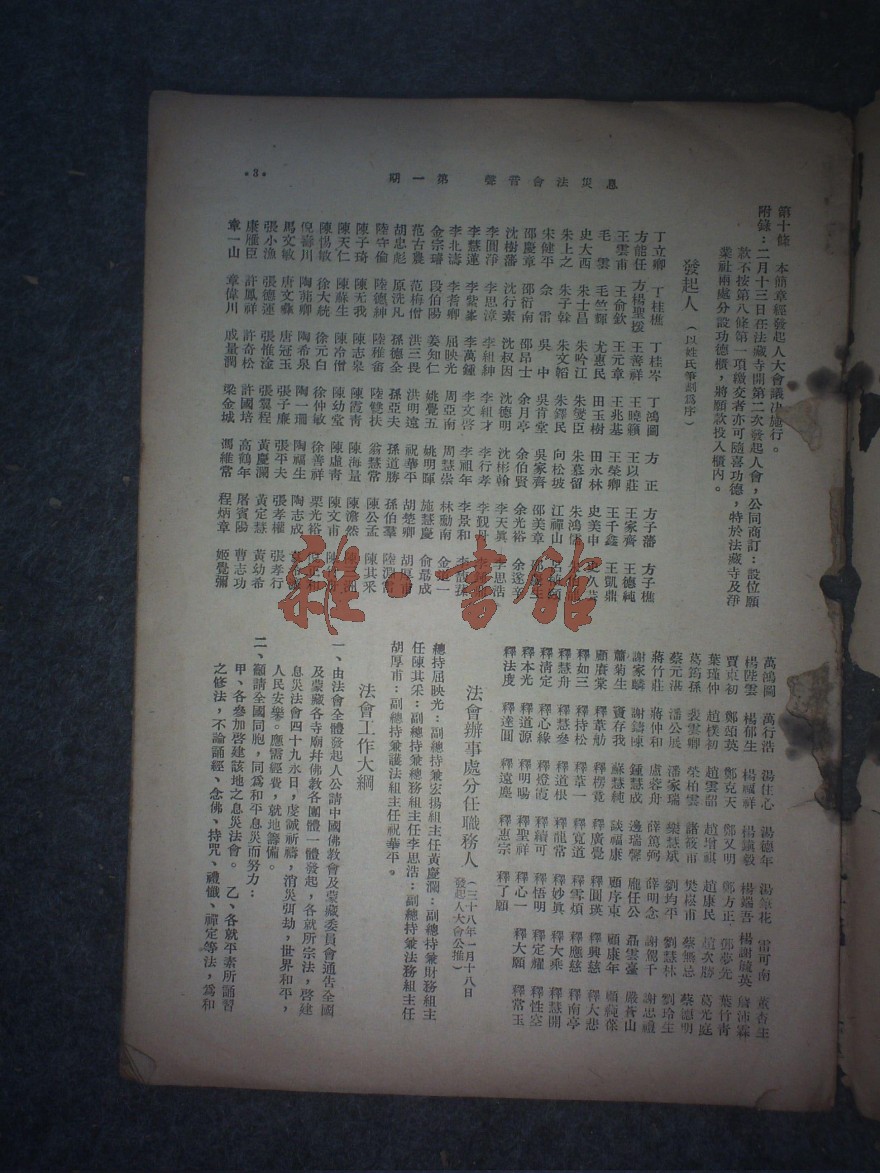 息災法會音聲　第一期
·3·
第十條　本簡章經發起人大會議決施行。
附錄：二月十三日在法藏寺開第二次發起人會，公同商訂：設位願
款不按第八條第一項繳交者亦可隨喜功德，特於法藏寺及淨
業社兩處分設功德櫃，將願款投入櫃內。
發起人（以姓氏筆劃爲序）
丁立卿　丁桂樵　丁桂岑　丁鴻圖　方　正　方子藩　方子樵
方能任　方楊聖援　王善祥　王曉籟　王以莊　王家齊　王德純
王雲甫　王俞欽　王元章　王兆基　王榮卿　王千鑫　王凱鼎
毛　雲　毛竺輝　尤惠民　田玉樹　田永林　史美中　史久芸
史大西　朱士昌　朱吟江　朱燮臣　朱慕留　朱鴻
朱上之　朱子幹　朱文韜　朱鐸民　向松坡　江禪山
宋健平　余　雷　吳　中　吳肯堂　吳家齊　邵美章　生
邵慶章　邵衍南　邵昂士　余月亭　余伯賢　余光裕　余遂辛
沈樹藩　沈行素　沈叔因　沈德明　沈彬翰　李天真　李思浩
李圓淨　李思漳　李組紳　李組才　李行孝　李覲丹
李慧蓮　李紫峯　李萬鍾　李文啓　李祖年　李景和　李馥孫
李北濤　李耆卿　屈映光　周亞南　周慧崇　林勤南　金　一
金宗璿　段伯陽　姜知仁　姚覺五　姚明暉　施慧慶　俞曷成
范古農　范梅僧　洪三畏　洪明遠　祝華平　胡楚卿　胡厚甫
胡忠彪　原洗凡　孫德全　孫亞夫　孫道勝　孫伯羣　陸淵雷
陸守倫　陸德紳　陸稚畬　陸雙扶　翁慧常　陳公孟　陳其采
陳子琦　陳无我　陳志皋　陳霞青　陳海量　陳濟然　洲
陳天仁　陳蘇生　陳冷僧　陳幼堂　陳虛青　陳文甫
陳傷敏　徐大統　徐元白　徐仲敏　徐善祥　栗光裕　和
倪壽川　陶菊卿　陶希泉　陶一珊　陶福生　陶志成
馬文敏　唐文驥　唐冠玉　張子廉　張平夫　張孝權　張孝行
張小漁　張德蓮　張惟淦　張翼程　黃慶瀾　黃定慧　黃幼希
康雁臣　許鳳祥　許奇松　許國培　高鶴年　屠賓陽　曹志功
章一山　章偉川　戚量潤　梁金城　馮雜常　程炳章　姬覺彌
萬鴻圖　萬行浩　湯住心　湯德年　湯筆花　雷可南　董杏生
楊陛雲　楊郁生　楊福祥　楊鎮毅　楊端吾　楊謝競英　虞沛霖
賈東初　鄭頌英　鄭克天　鄭又明　鄭方正　鄭夢先　葉竹青
葉瑾仲　趙樸初　趙雲韶　趙增祺　趙康民　趙次勝　葛光庭
葛筠孫　裴雲卿　榮柏雲　諸筱甫　樊崧甫　蔡無忌　蔡德明
蔡元湛　潘公展　潘家瑞　樂慧斌　劉均平　劉慧林　劉玲生
蔣竹莊　蔣仲和　盧蓉舟　薛篤弼　薛明念　謝駕千　謝思禮
謝家麟　謝鑄陳　鍾慧成　邊瑞馨　龐任公　聶雲臺　嚴蒼山
蕭菊生　竇存我　蘇慧純　談福康　顧序東　顧康年　顧蔭葆
顧賡棠　釋葦舫　釋楞覺　釋廣覺　釋圓瑛　釋興慈　釋大悲
釋如三　釋持松　釋葦一　釋寬道　釋雪煩　釋應慈　釋南亭
釋慧舟　釋慧參　釋道根　釋龍常　釋妙真　釋大乘　釋慧開
釋清定　釋心緣　釋燈霞　釋續可　釋悟明　釋定耀　釋性空
釋本光　釋道源　釋明暘　釋聖祥　釋心一　釋大願　釋常玉
釋法度　釋達圓　釋遠塵　釋惠宗　釋了願
法會辦事處分任職務人（三十八年一月十八日發起人大會公推）
總持屈映光：副總持兼宏揚組主任黃慶瀾：副總持兼財務組主
任陳其采：副總持兼總務組主任李思浩：副總持兼法務組主任
胡厚甫：副總持兼護法組主任祝華平。
法會工作大綱
一、由法會全體發起人公請中國佛教會及蒙藏委員會通告全國
及蒙藏各寺廟幷佛教各團體一體發起，各就所宗法，啓建
息災法會四十九永日，虔誠祈禱，消災弭劫，世界和平，
人民安樂。應需經費，就地籌備。
二、籲請全國同胞，同爲和平息災而努力：
甲、各參加啓建該地之息災法會。　乙、各就平素所誦習
之修法，不論誦經、念佛、持咒、禮懺、禪定等法，爲和
雜·書館